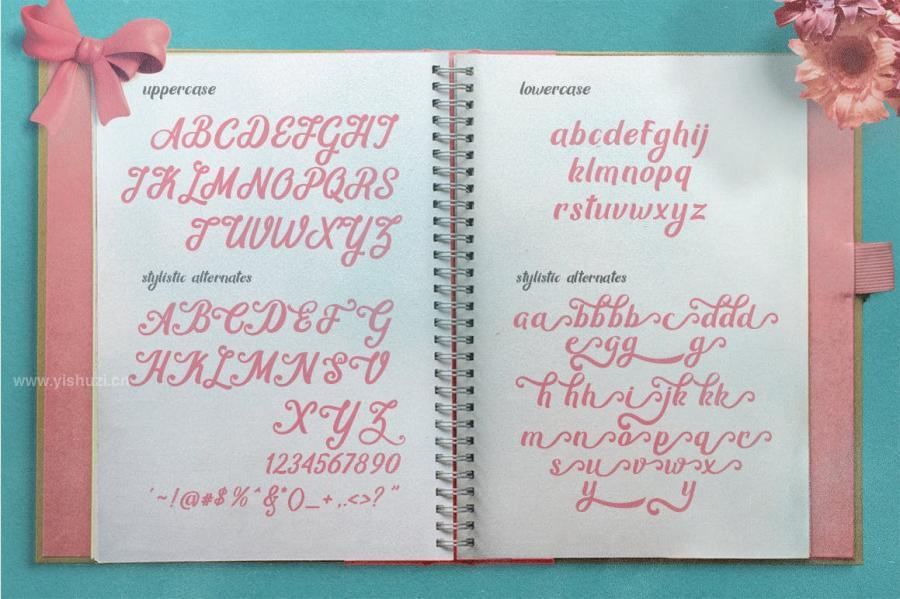 uppercase
ABCDEFGHI
JKLMNOPQRS
TUVWXYZ
stylistic alternates
ABCDEFG
HKLMNSU
XYZ
1234567890
`~!@#$%^&*()_+,.<>?"
lowercase
abcdefghij
klmnopq
rstuvwxyz
stylistic alternates
aabbbbcddd
eggg
hhhijkkk
mnopqrc
suvwx
yy
www.yishuzi.cn